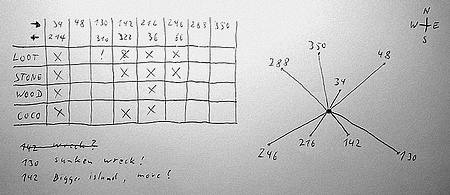 → 34 48 130 142 216 246 288 350
← 214 310 322 36 66
LOOT X ! X X X
STONE X X X X
WOOD X
COCO X X X
142 wreck?
130 sunken wreck!
142 Bigger island, more!
N
W E
S
350
288
48
34
246
216
142
130